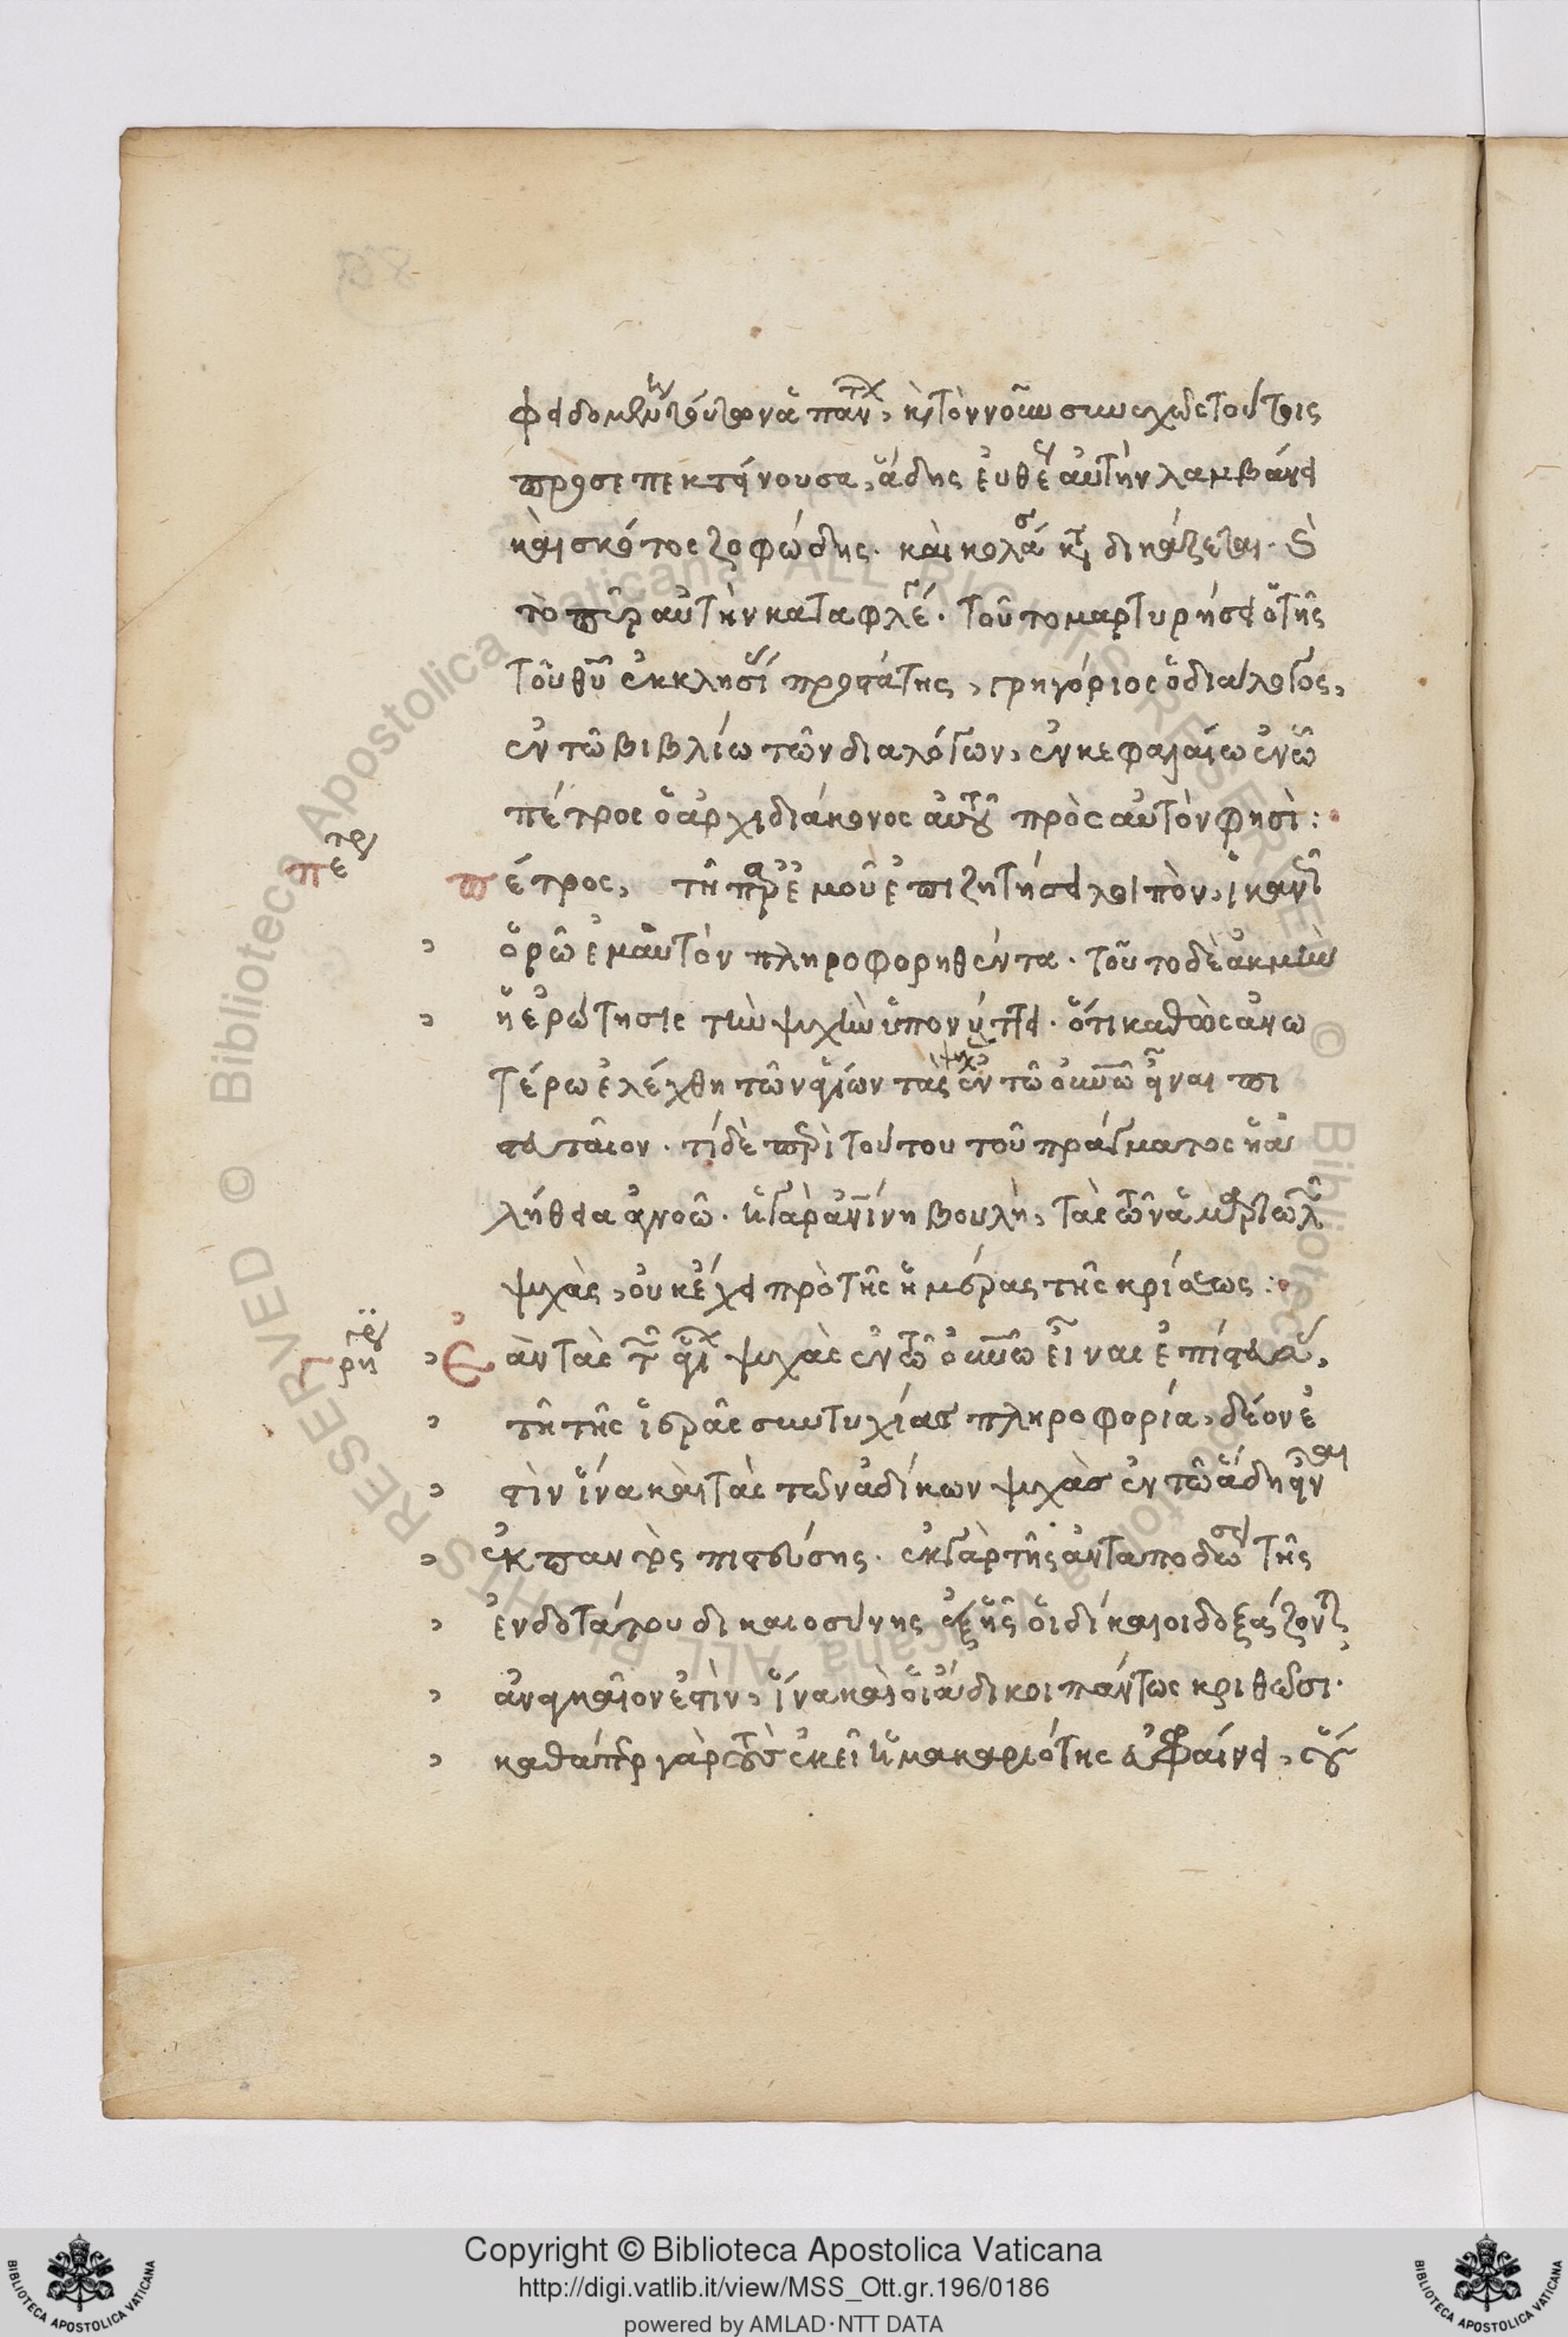 πρὸσεπεκτείνουσα, ἅδης εὐθὺς αὐτὴν λαμβάνει
καὶ σκότος ζοφώδης. καὶ κολά κτ δικάζεται.
τὸ πῦρ αὐτὴν καταφλέ. τοῦτο μαρτυρήσει ὁ τῆς
τοῦ θυ ἐκκλησί προστάτης, γρηγόριος ὁ διάλογος,
ἐν τῶ βιβλίω τῶν διαλόγων, ἐν κεφαλαίω ἐν ὧ
πέτρος ὁ ἀρχιδιάκονος αὐτοῦ πρὸς αὐτὸν φησὶ:
πετρ
πέτρος, τῆ παρ ἐμοῦ ἐπιζητήσει λοιπὸν, ἱκανῶ
ὁρῶ ἐμαυτὸν πληροφορηθέντα. τοῦτο δὲ ἀκμὴν
ἡ ἐρώτησις τὴν ψυχὴν ὑπονύττει. ὅτι καθὼς ἀνω
τέρω ἐλέχθη τῶν ἁγίων τὰς ψυχ ἐν τῶ οὐνῶ εἶναι πι
στευταῖον. τί δὲ περὶ τούτου τοῦ πράγματος ἡ ἀ
λήθεια ἀγνοῶ. ἡ γὰρ ἀνίνη βουλὴ, τὰς τῶν ἁμαρτωλ
ψυχὰς, οὐκ ἔχει πρὸ τῆς ἡμέρας τῆς κρίσεως:
γρη
ἐὰν τὰς τ ἁγί ψυχὰς ἐν τῶ οὐνῶ εἶναι ἐπίστευ,
τῆ τῆς ἱερᾶς συντυχίας πληροφορία, δέον ἐ
στὶν ἵνα καὶ τὰς τῶν ἀδίκων ψυχὰς ἐν τῶ ἅδη εἶναι
ἐκ παντὸς πιστεύσης. ἐκ γὰρ τῆς ἀνταποδώσε τῆς
ἐνδοτάτου δικαιοσύνης ἐξ ἧς οἱ δίκαιοι δοξάζοντ
ἀναγκαῖον ἐστὶν, ἵνα καὶ οἱ ἄδικοι πάντως κριθῶσι.
καθάπερ γὰρ τοὺς ἐκεῖ ἡ μακαριότης εὐφραίνει,
Copyright © Biblioteca Apostolica Vaticana
http://digi.vatlib.it/view/MSS_Ott.gr.196/0186
powered by AMLAD·NTT DATA